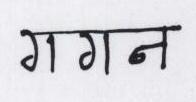 गगन